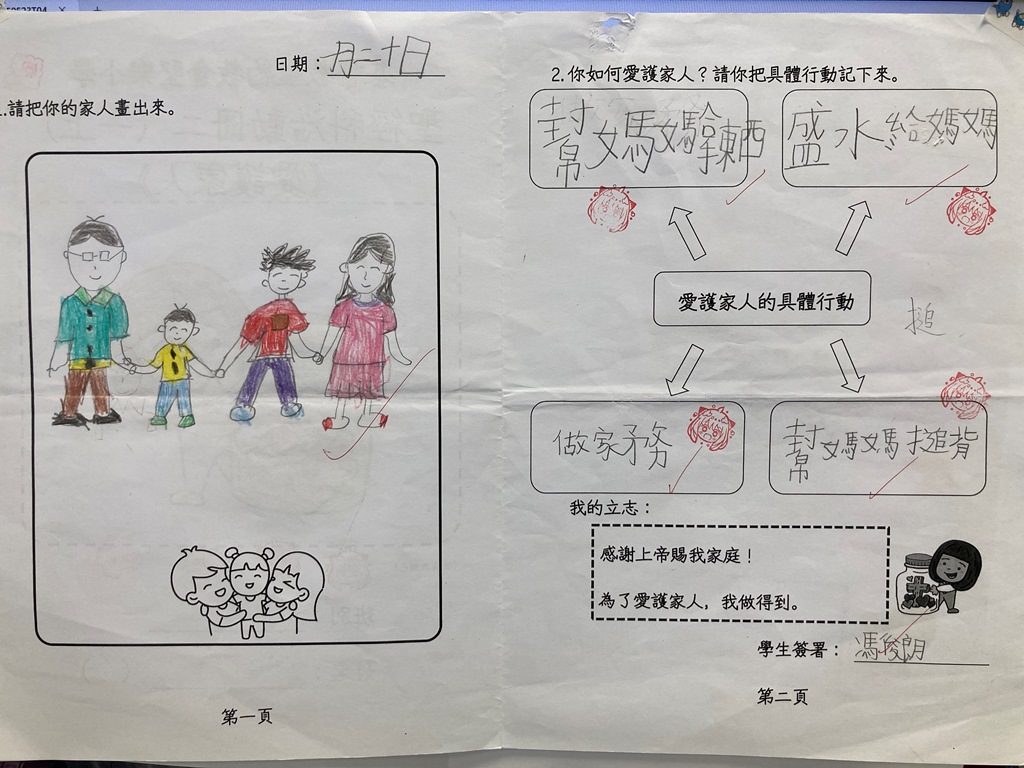 日期：月二十日
.請把你的家人畫出來。
第一頁
2.你如何愛護家人？請你把具體行動記下來。
幫媽媽拿東西
盛水給媽媽
愛護家人的具體行動
搥
做家務
幫媽媽搥背
我的立志：
感謝上帝賜我家庭！
為了愛護家人，我做得到。
學生簽署：馮俊朗
第二頁